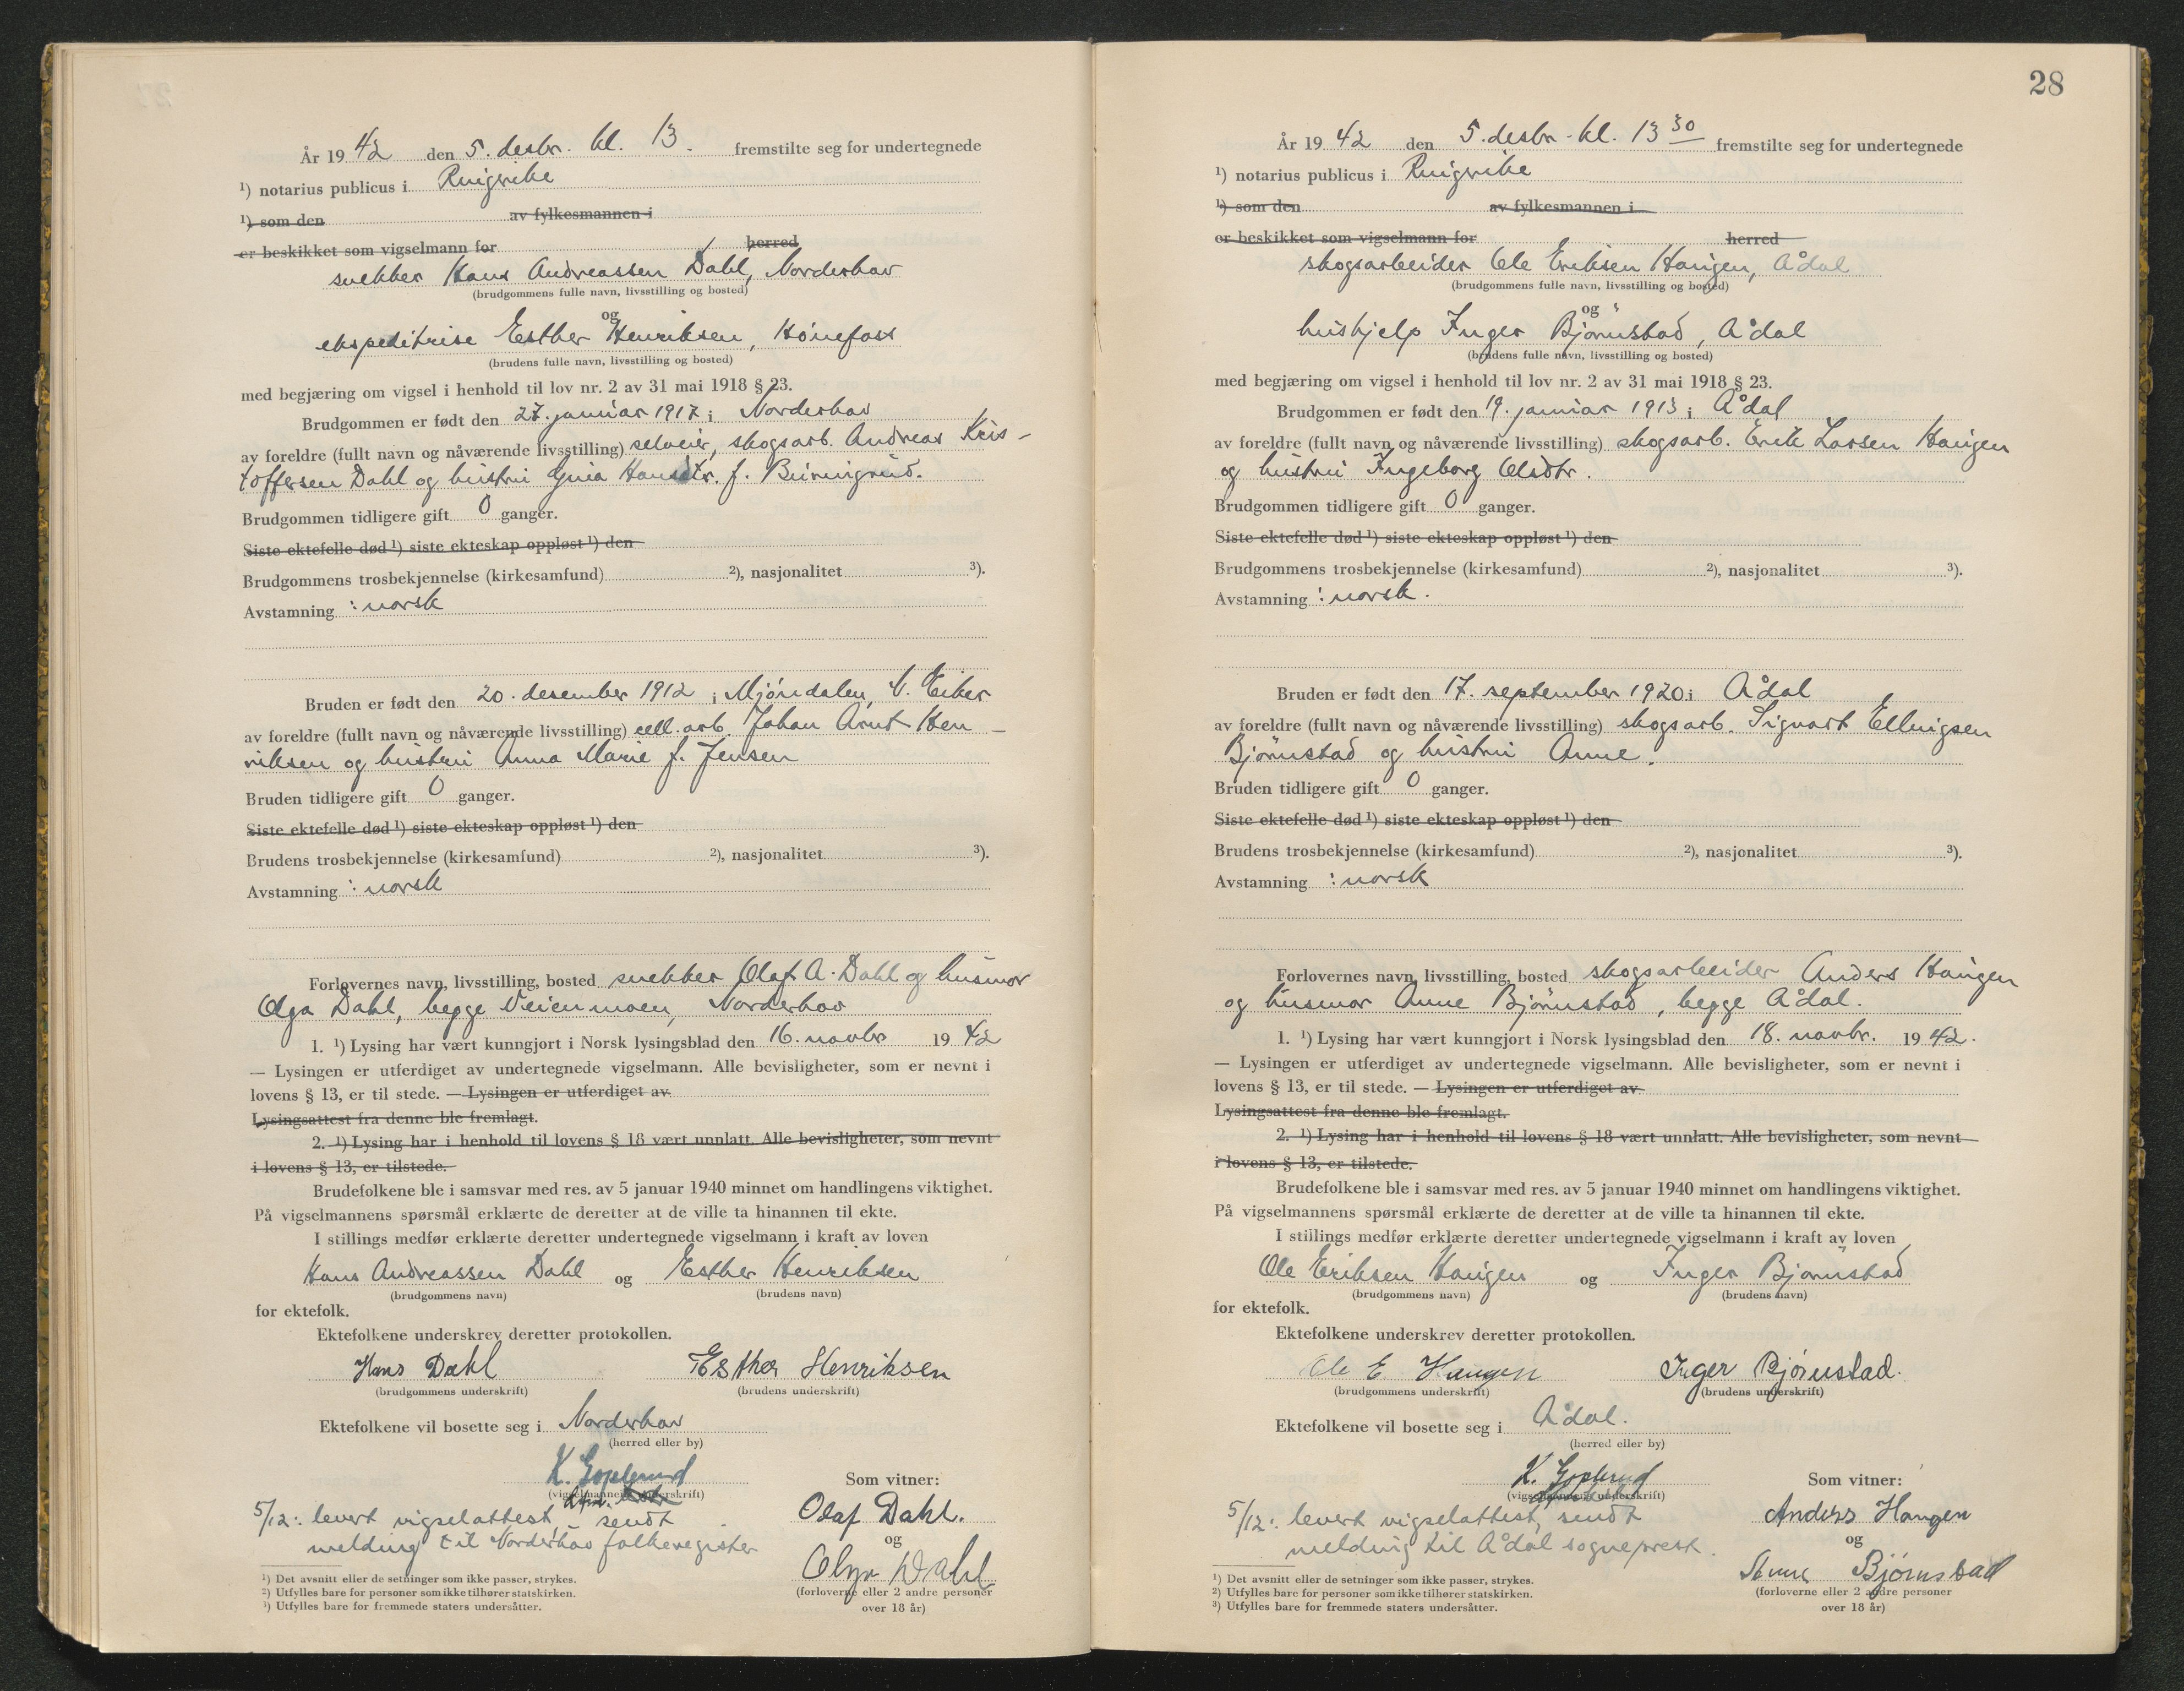 År 1942 den 5. desbr. kl. 13. fremstilte seg for undertegnede
¹) notarius publicus i Ringerike
¹) som den av fylkesmannen i
er beskikket som vigselmann for herred
snekker Hans Andreassen Dahl, Norderhov
(brudgommens fulle navn, livsstilling og bosted)
og
ekspeditrise Esther Henriksen, Hønefoss
(brudens fulle navn, livsstilling og bosted)
med begjæring om vigsel i henhold til lov nr. 2 av 31 mai 1918 § 23.
Brudgommen er født den 27. januar 1917 i Norderhov
av foreldre (fullt navn og nåværende livsstilling) selveier, skogsarb. Andreas Kris-
toffersen Dahl og hustru Gina Hansdtr. f. Buringrud.
Brudgommen tidligere gift 0 ganger.
Siste ektefelle død ¹) siste ekteskap oppløst ¹) den
Brudgommens trosbekjennelse (kirkesamfund) ²), nasjonalitet ³).
Avstamning : norsk
Bruden er født den 20. desember 1912 i Mjøndalen, N. Eiker
av foreldre (fullt navn og nåværende livsstilling) cell. arb. Johan Arnt Hen-
riksen og hustru Anna Marie f. Jensen
Bruden tidligere gift 0 ganger.
Siste ektefelle død ¹) siste ekteskap oppløst ¹) den
Brudens trosbekjennelse (kirkesamfund) ²), nasjonalitet ³).
Avstamning : norsk
Forlovernes navn, livsstilling, bosted snekker Olaf A. Dahl og husmor
Olga Dahl, begge Veienmoen, Norderhov
1. ¹) Lysing har vært kunngjort i Norsk lysingsblad den 16. novbr 1942
— Lysingen er utferdiget av undertegnede vigselmann. Alle bevisligheter, som er nevnt i
lovens § 13, er til stede. — Lysingen er utferdiget av
Lysingsattest fra denne ble fremlagt.
2. ¹) Lysing har i henhold til lovens § 18 vært unnlatt. Alle bevisligheter, som nevnt
i lovens § 13, er tilstede.
Brudefolkene ble i samsvar med res. av 5 januar 1940 minnet om handlingens viktighet.
På vigselmannens spørsmål erklærte de deretter at de ville ta hinannen til ekte.
I stillings medfør erklærte deretter undertegnede vigselmann i kraft av loven
Hans Andreassen Dahl og Esther Henriksen
(brudgommens navn) (brudens navn)
for ektefolk.
Ektefolkene underskrev deretter protokollen.
Hans Dahl Esther Henriksen
(brudgommens underskrift) (brudens underskrift)
Ektefolkene vil bosette seg i Norderhov
(herred eller by)
K. Goplerud
(vigselmannens underskrift)
Som vitner:
Olaf Dahl.
og
Olga Dahl
(forloverne eller 2 andre personer
over 18 år)
5/12: levert vigselattest, sendt
melding til Norderhov folkeregister
¹) Det avsnitt eller de setninger som ikke passer, strykes.
²) Utfylles bare for personer som ikke tilhører statskirken.
³) Utfylles bare for fremmede staters undersåtter.
28
År 1942 den 5. desbr. kl. 13 30 fremstilte seg for undertegnede
¹) notarius publicus i Ringerike
¹) som den av fylkesmannen i
er beskikket som vigselmann for herred
skogsarbeider Ole Eriksen Haugen, Ådal
(brudgommens fulle navn, livsstilling og bosted)
og
hushjelp Inger Bjørnstad, Ådal
(brudens fulle navn, livsstilling og bosted)
med begjæring om vigsel i henhold til lov nr. 2 av 31 mai 1918 § 23.
Brudgommen er født den 19. januar 1913 i Ådal
av foreldre (fullt navn og nåværende livsstilling) skogsarb. Erik Larsen Haugen
og hustru Ingeborg Olsdtr.
Brudgommen tidligere gift 0 ganger.
Siste ektefelle død ¹) siste ekteskap oppløst ¹) den
Brudgommens trosbekjennelse (kirkesamfund) ²), nasjonalitet ³).
Avstamning : norsk.
Bruden er født den 17. september 1920 i Ådal
av foreldre (fullt navn og nåværende livsstilling) skogsarb. Sigvart Ellingsen
Bjørnstad og hustru Anne.
Bruden tidligere gift 0 ganger.
Siste ektefelle død ¹) siste ekteskap oppløst ¹) den
Brudens trosbekjennelse (kirkesamfund) ²), nasjonalitet ³).
Avstamning : norsk
Forlovernes navn, livsstilling, bosted skogsarbeider Anders Haugen
og husmor Anne Bjørnstad, begge Ådal.
1. ¹) Lysing har vært kunngjort i Norsk lysingsblad den 18. novbr. 1942.
— Lysingen er utferdiget av undertegnede vigselmann. Alle bevisligheter, som er nevnt i
lovens § 13, er til stede. — Lysingen er utferdiget av
Lysingsattest fra denne ble fremlagt.
2. ¹) Lysing har i henhold til lovens § 18 vært unnlatt. Alle bevisligheter, som nevnt
i lovens § 13, er tilstede.
Brudefolkene ble i samsvar med res. av 5 januar 1940 minnet om handlingens viktighet.
På vigselmannens spørsmål erklærte de deretter at de ville ta hinannen til ekte.
I stillings medfør erklærte deretter undertegnede vigselmann i kraft av loven
Ole Eriksen Haugen og Inger Bjørnstad
(brudgommens navn) (brudens navn)
for ektefolk.
Ektefolkene underskrev deretter protokollen.
Ole E Haugen Inger Bjørnstad.
(brudgommens underskrift) (brudens underskrift)
Ektefolkene vil bosette seg i Ådal.
(herred eller by)
K. Goplerud
(vigselmannens underskrift)
Som vitner:
Anders Haugen
og
Anne Bjørnstad
(forloverne eller 2 andre personer
over 18 år)
5/12: levert vigselattest, sendt
melding til Ådal sogneprest.
¹) Det avsnitt eller de setninger som ikke passer, strykes.
²) Utfylles bare for personer som ikke tilhører statskirken.
³) Utfylles bare for fremmede staters undersåtter.